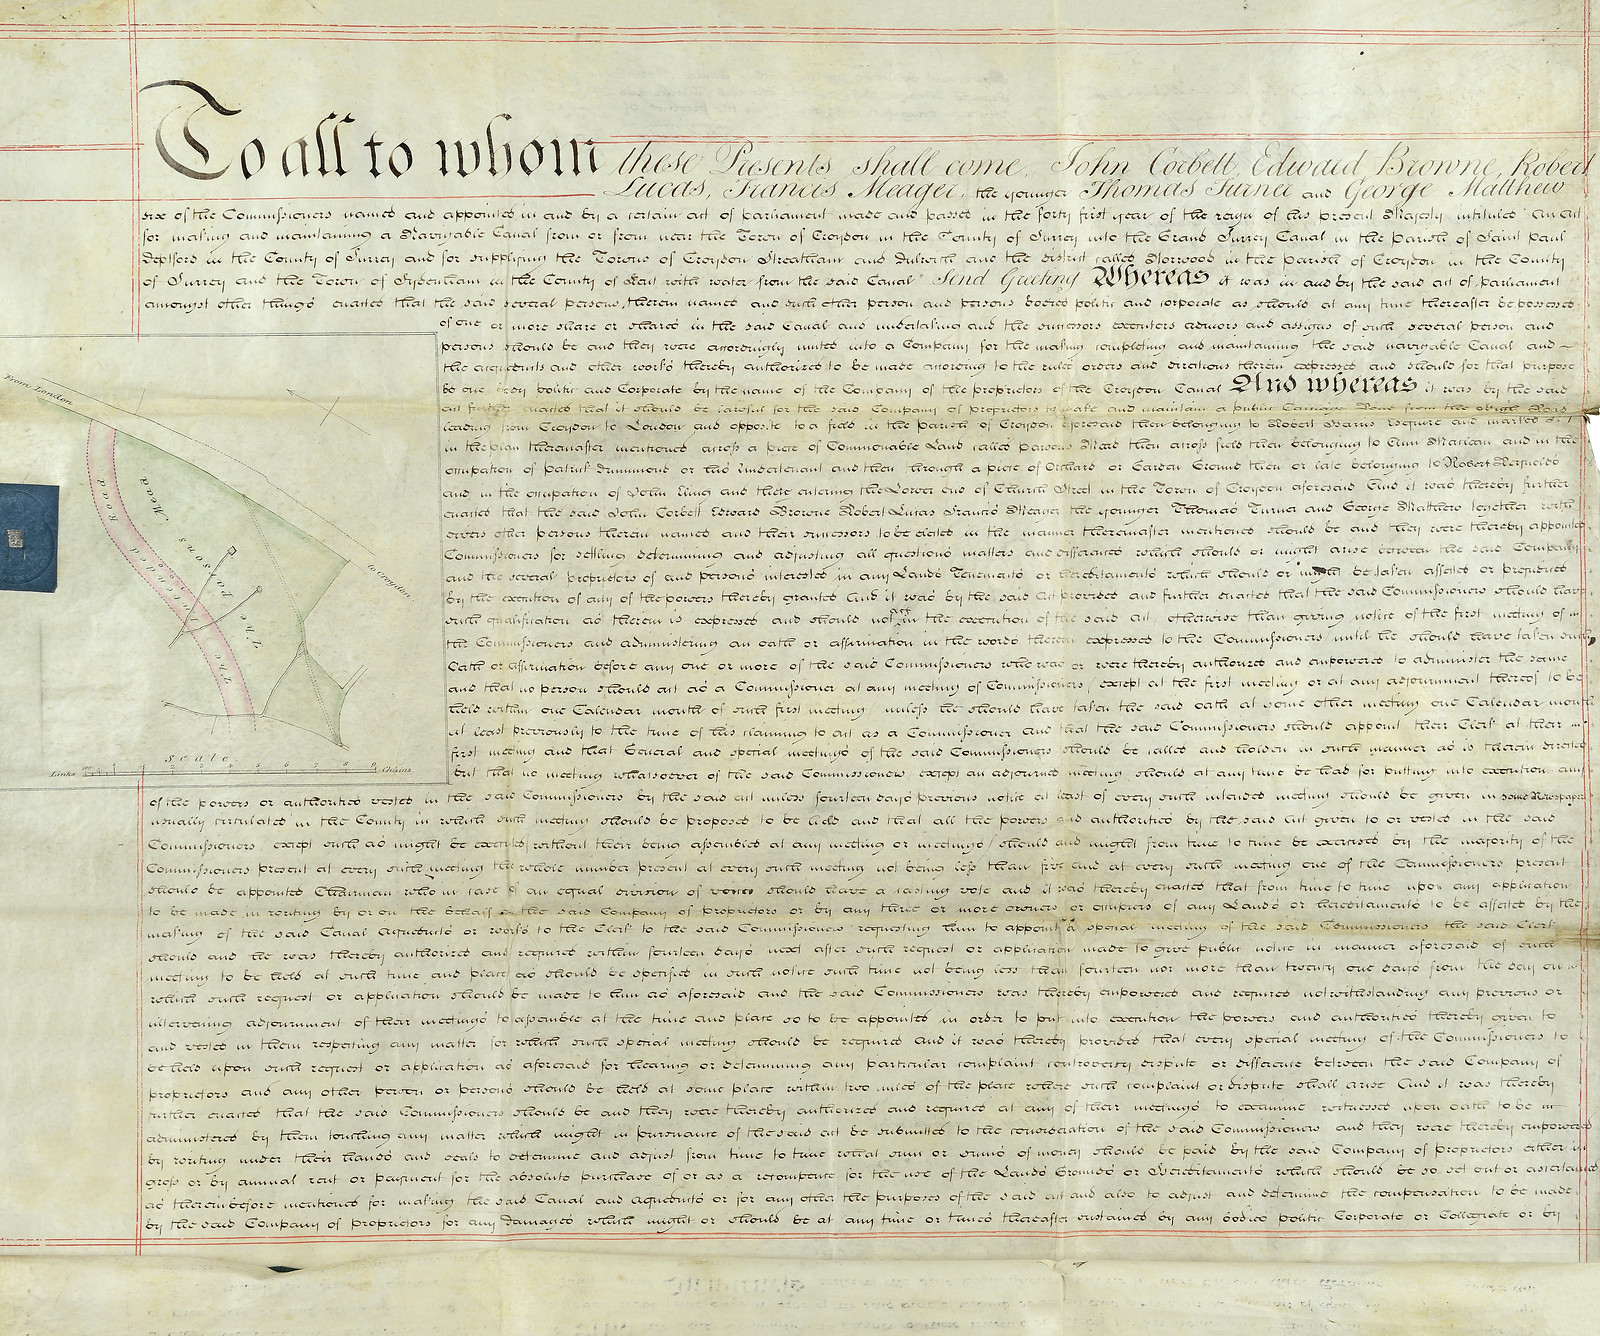 To all to whom these Presents shall come, John Corbett, Edward Browne, Robert
Lucas, Francis Meager, the younger Thomas Turner and George Matthew
six of the Commissioners named and appointed in and by a certain act of parliament made and passed in the forty first year of the reign of his present Majesty intituled "An act
for making and maintaining a Navigable Canal from or from near the Town of Croydon in the County of Surrey into the Grand Surrey Canal in the parish of Saint Paul
Deptford in the County of Surrey and for supplying the Towns of Croydon Streatham and Dulwich and the district called Norwood in the parish of Croydon in the County
of Surrey and the Town of Sydenham in the County of Kent with water from the said Canal" Send Greeting Whereas it was in and by the said act of parliament
amongst other things enacted that the said several persons therein named and such other person and persons bodies politic and corporate as should at any time thereafter be possessed
of one or more share or shares in the said Canal and undertaking and the successors executors admors and assigns of such several person and
persons should be and they were accordingly united into a Company for the making completing and maintaining the said navigable Canal and
the aqueducts and other works thereby authorized to be made according to the rules orders and directions therein expressed and should for that purpose
be one body politic and Corporate by the name of the Company of the proprietors of the Croydon Canal And whereas it was by the said
act further enacted that it should be lawful for the said Company of proprietors to make and maintain a public Carriage Road from the High Road
leading from Croydon to London and opposite to a field in the parish of Croydon aforesaid then belonging to Robert Harris Esquire and marked
in the plan thereinafter mentioned across a piece of Commonable Land called parsons Mead then across field then belonging to Ann and in the
occupation of Patrick Drummond or his Undertenant and then through a piece of Orchard or Garden Ground then or late belonging to Robert
and in the occupation of John King and there entering the Lower end of Church Street in the Town of Croydon aforesaid And it was thereby further
enacted that the said John Corbett Edward Browne Robert Lucas Francis Meager the younger Thomas Turner and George Matthew together with
divers other persons therein named and their successors to be elected in the manner thereinafter mentioned should be and they were thereby appointed
Commissioners for settling determining and adjusting all questions matters and differences which should or might arise between the said Company
and the several proprietors of and persons interested in any Lands Tenements or hereditaments which should or might be taken affected or prejudiced
by the execution of any of the powers thereby granted And it was by the said Act provided and further enacted that the said Commissioners should have
such qualification as therein is expressed and should not act in the execution of the said act, otherwise than giving notice of the first meeting of
the Commissioners and administering an oath or affirmation in the words therein expressed to the Commissioners until he should have taken such
Oath or affirmation before any one or more of the said Commissioners who was or were thereby authorized and empowered to administer the same
and that no person should act as a Commissioner at any meeting of Commissioners, except at the first meeting or at any adjournment thereof to be
held within one Calendar month of such first meeting, unless he should have taken the said oath at some other meeting one Calendar month
at least previously to the time of his claiming to act as a Commissioner and that the said Commissioners should appoint their Clerk at their
first meeting and that General and special meetings of the said Commissioners should be called and holden in such manner as is therein directed
but that no meeting whatsoever of the said Commissioners except an adjourned meeting should at any time be had for putting into execution any
of the powers or authorities vested in the said Commissioners by the said act unless fourteen days previous notice at least of every such intended meeting should be given in some Newspaper
usually circulated in the County in which such meeting should be proposed to be held and that all the powers and authorities by the said act given to or vested in the said
Commissioners except such as might be executed without their being assembled at any meeting or meetings should and might from time to time be exercised by the majority of the
Commissioners present at every such meeting the whole number present at every such meeting not being less than five and at every such meeting one of the Commissioners present
should be appointed Chairman who in case of an equal division of voices should have a casting vote and it was thereby enacted that from time to time upon any application
to be made in writing by or on the behalf of the said Company of proprietors or by any three or more owners or occupiers of any Lands or hereditaments to be affected by the
making of the said Canal aqueducts or works to the Clerk to the said Commissioners requesting him to appoint a special meeting of the said Commissioners the said Clerk
should and he was thereby authorized and required within fourteen days next after such request or application made to give public notice in manner aforesaid of such
meeting to be held at such time and place as should be specified in such notice such time not being less than fourteen nor more than twenty one days from the day on
which such request or application should be made to him as aforesaid and the said Commissioners was thereby empowered and required notwithstanding any previous or
intervening adjournment of their meetings to assemble at the time and place so to be appointed in order to put into execution the powers and authorities thereby given to
and vested in them respecting any matter for which such special meeting should be required And it was thereby provided that every special meeting of the Commissioners to
be held upon such request or application as aforesaid for hearing or determining any particular complaint controversy dispute or difference between the said Company of
proprietors and any other person or persons should be held at some place within two miles of the place where such complaint or dispute shall arise And it was thereby
further enacted that the said Commissioners should be and they were thereby authorized and required at any of their meetings to examine witnesses upon oath to be
administered by them touching any matter which might in pursuance of the said act be submitted to the consideration of the said Commissioners and they were thereby empowered
by writing under their hands and seals to determine and adjust from time to time what sum or sums of money should be paid by the said Company of proprietors either in
gross or by annual rent or payment for the absolute purchase of or as a recompence for the use of the Lands Grounds or Hereditaments which should be so set out or ascertained
as thereinbefore mentioned for making the said Canal and aqueducts or for any other the purposes of the said act and also to adjust and determine the compensation to be made
by the said Company of proprietors for any damages which might or should be at any time or times thereafter sustained by any bodies politic Corporate or Collegiate or by
From London
to Croydon
The Intended Road
The Parsons Mead
Scale
Links 1 2 3 4 5 6 7 8 9 Chains